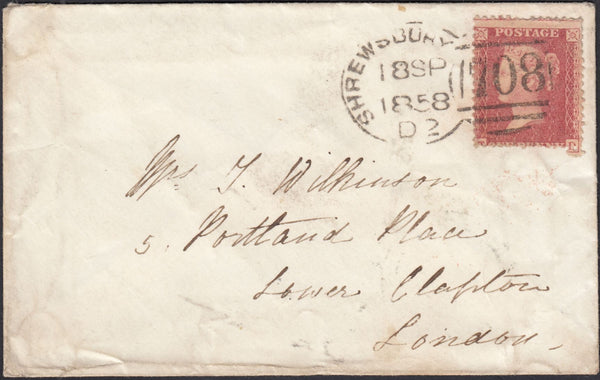 POSTAGE
SHREWSBURY
18SP
1858
D2
708
Mrs T. Wilkinson
5. Portland Place
Lower Clapton
London.